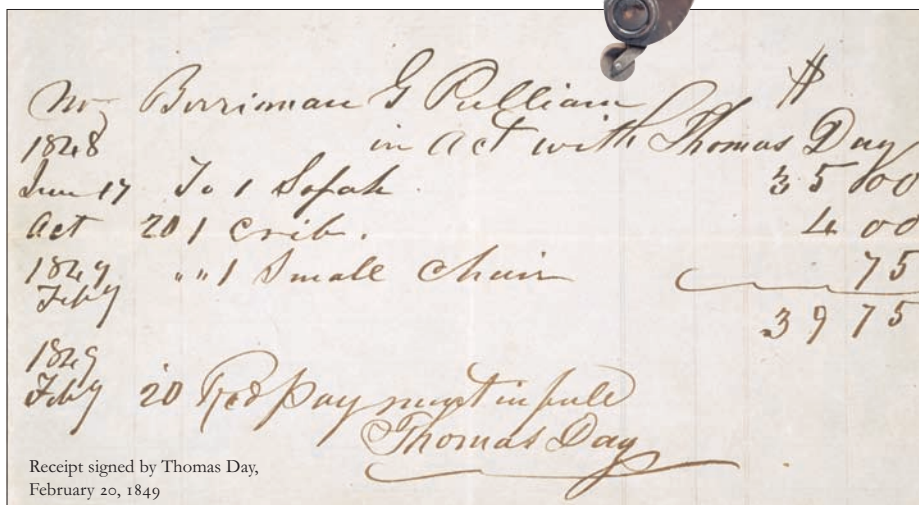 Mr Berriman G Pulliam $
1848 in act with Thomas Day
June 17 To 1 Sofah 35 00
Oct 20 1 Crib. 4 00
1849 " " 1 Small Chair 75
Feby 39 75
1849
Feby 20 Recd payment in full
Thomas Day
Receipt signed by Thomas Day,
February 20, 1849